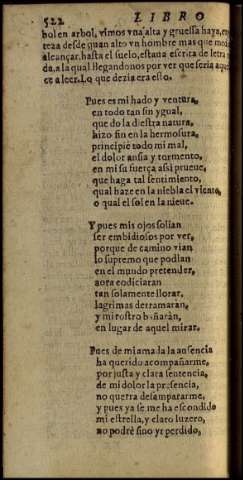 522 LIBRO
bol en arbol, vimos vna alta y gruessa haya, en
teza desde quan alto vn hombre mas que me
alcançar, hasta el suelo, estaua escrita de letra
da, a la qual llegandonos por ver que seria aque
ce a leer. Lo que dezia era esto.
Pues es mi hado y ventura,
en todo tan sin ygual,
que do la diestra natura,
hizo fin en la hermosura,
principiè todo mi mal,
el dolor ansia y tormento,
en mi su fuerça assi prueue,
que haga tal sentimiento,
qual haze en la niebla el viento,
o qual el sol en la nieue.
Y pues mis ojos solian
ser embidiosos por ver,
porque de camino vian
lo supremo que podian
en el mundo pretender,
aora codiciaran
tan solamente llorar,
lagrimas derramaran,
y mi rostro bañaràn,
en lugar de aquel mirar.
Pues de mi amada la ausencia
ha querido acompañarme,
por justa y clara sentencia,
de mi dolor la presencia,
no querra desampararme,
y pues ya se me ha escondido
mi estrella, y claro luzero,
no podrè sino yr perdido,